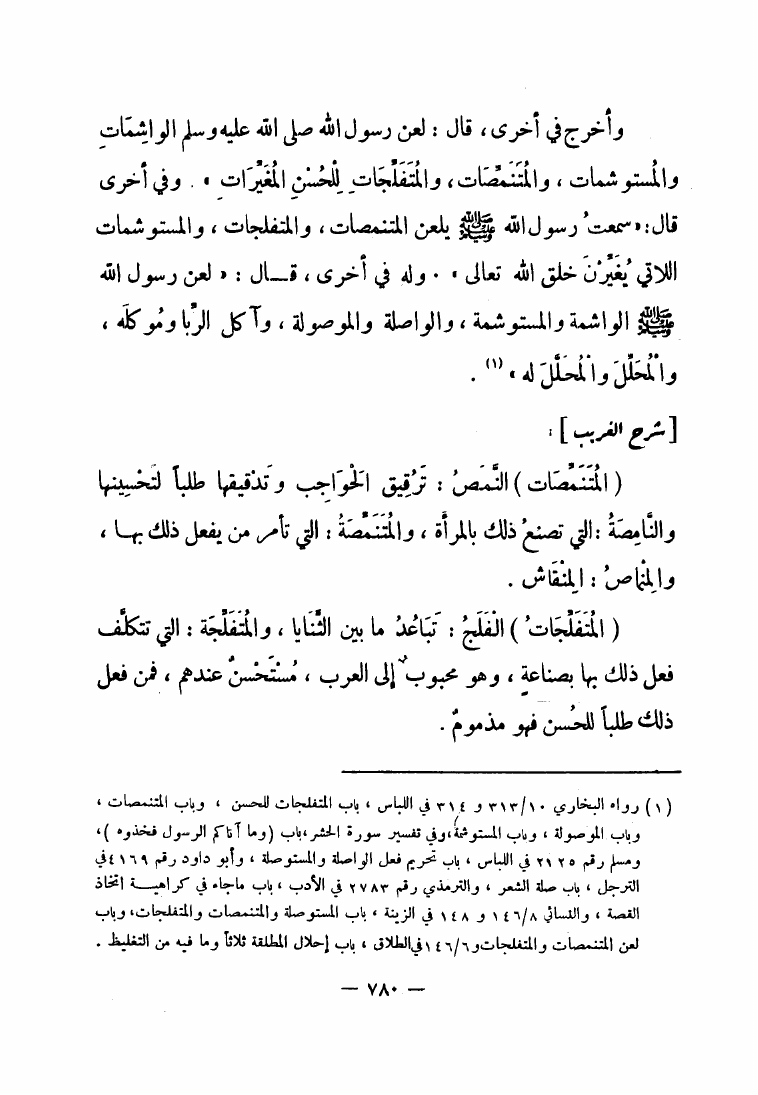 وأخرج في أخرى ، قال : لعن رسول الله صلى الله عليه وسلم الواشِمَاتِ
والمُستوشمات ، والمُتَنَمِّصَات ، والمُتَفَلِّجَاتِ لِلْحُسْنِ المُغَيِّرَاتِ » . وفي أخرى
قال : « سمعتُ رسول الله ﷺ يلعن المتنمصات ، والمتفلجات ، والمستوشمات
اللاتي يُغَيِّرْنَ خلق الله تعالى » . وله في أخرى ، قــال : « لعن رسول الله
ﷺ الواشمة والمستوشمة ، والواصلة والموصولة ، وآكل الرِّبا ومُوكلَه ،
والْمُحَلِّلَ والْمُحَلَّلَ له » (١) .
[ شرح الغريب ] :
( المُتَنَمِّصَات ) النَّمَصُ : تَرْقِيق الحَوَاجِب وتَدْقيقها طلباً لتَحْسِينها
والنَّامِصَةُ : التي تصنعُ ذلك بالمرأة ، والمُتَنَمِّصَةُ : التي تأمر من يفعل ذلك بهــا ،
والمِنْمَاصُ : المِنْقَاش .
( المُتَفَلِّجَاتُ ) الْفَلَجُ : تَبَاعُدُ ما بين الثَّنَايا ، والمُتَفَلِّجَة : التي تتكلَّف
فعل ذلك بها بصناعةٍ ، وهو محبوبٌ إلى العرب ، مُسْتَحْسنٌ عندهم ، فمن فعل
ذلك طلباً للحُسن فهو مذمومٌ .
(١) رواه البخاري ٣١٣/١٠ و ٣١٤ في اللباس ، باب المتفلجات للحسن ، وباب المتنمصات ،
وباب الموصولة ، وباب المستوشمة، وفي تفسير سورة الحشر ، باب (وما آتاكم الرسول فخذوه ) ،
ومسلم رقم ٢١٢٥ في اللباس ، باب تحريم فعل الواصلة والمستوصلة ، وأبو داود رقم ٤١٦٩ في
الترجل ، باب صلة الشعر ، والترمذي رقم ٢٧٨٣ في الأدب ، باب ماجاء في كراهيــة اتخاذ
القصة ، والنسائي ١٤٦/٨ و ١٤٨ في الزينة ، باب المستوصلة والمتنمصات والمتفلجات، وباب
لعن المتنمصات والمتفلجات و ١٤٦/٦ في الطلاق ، باب إحلال المطلقة ثلاثاً وما فيه من التغليظ .
— ٧٨٠ —